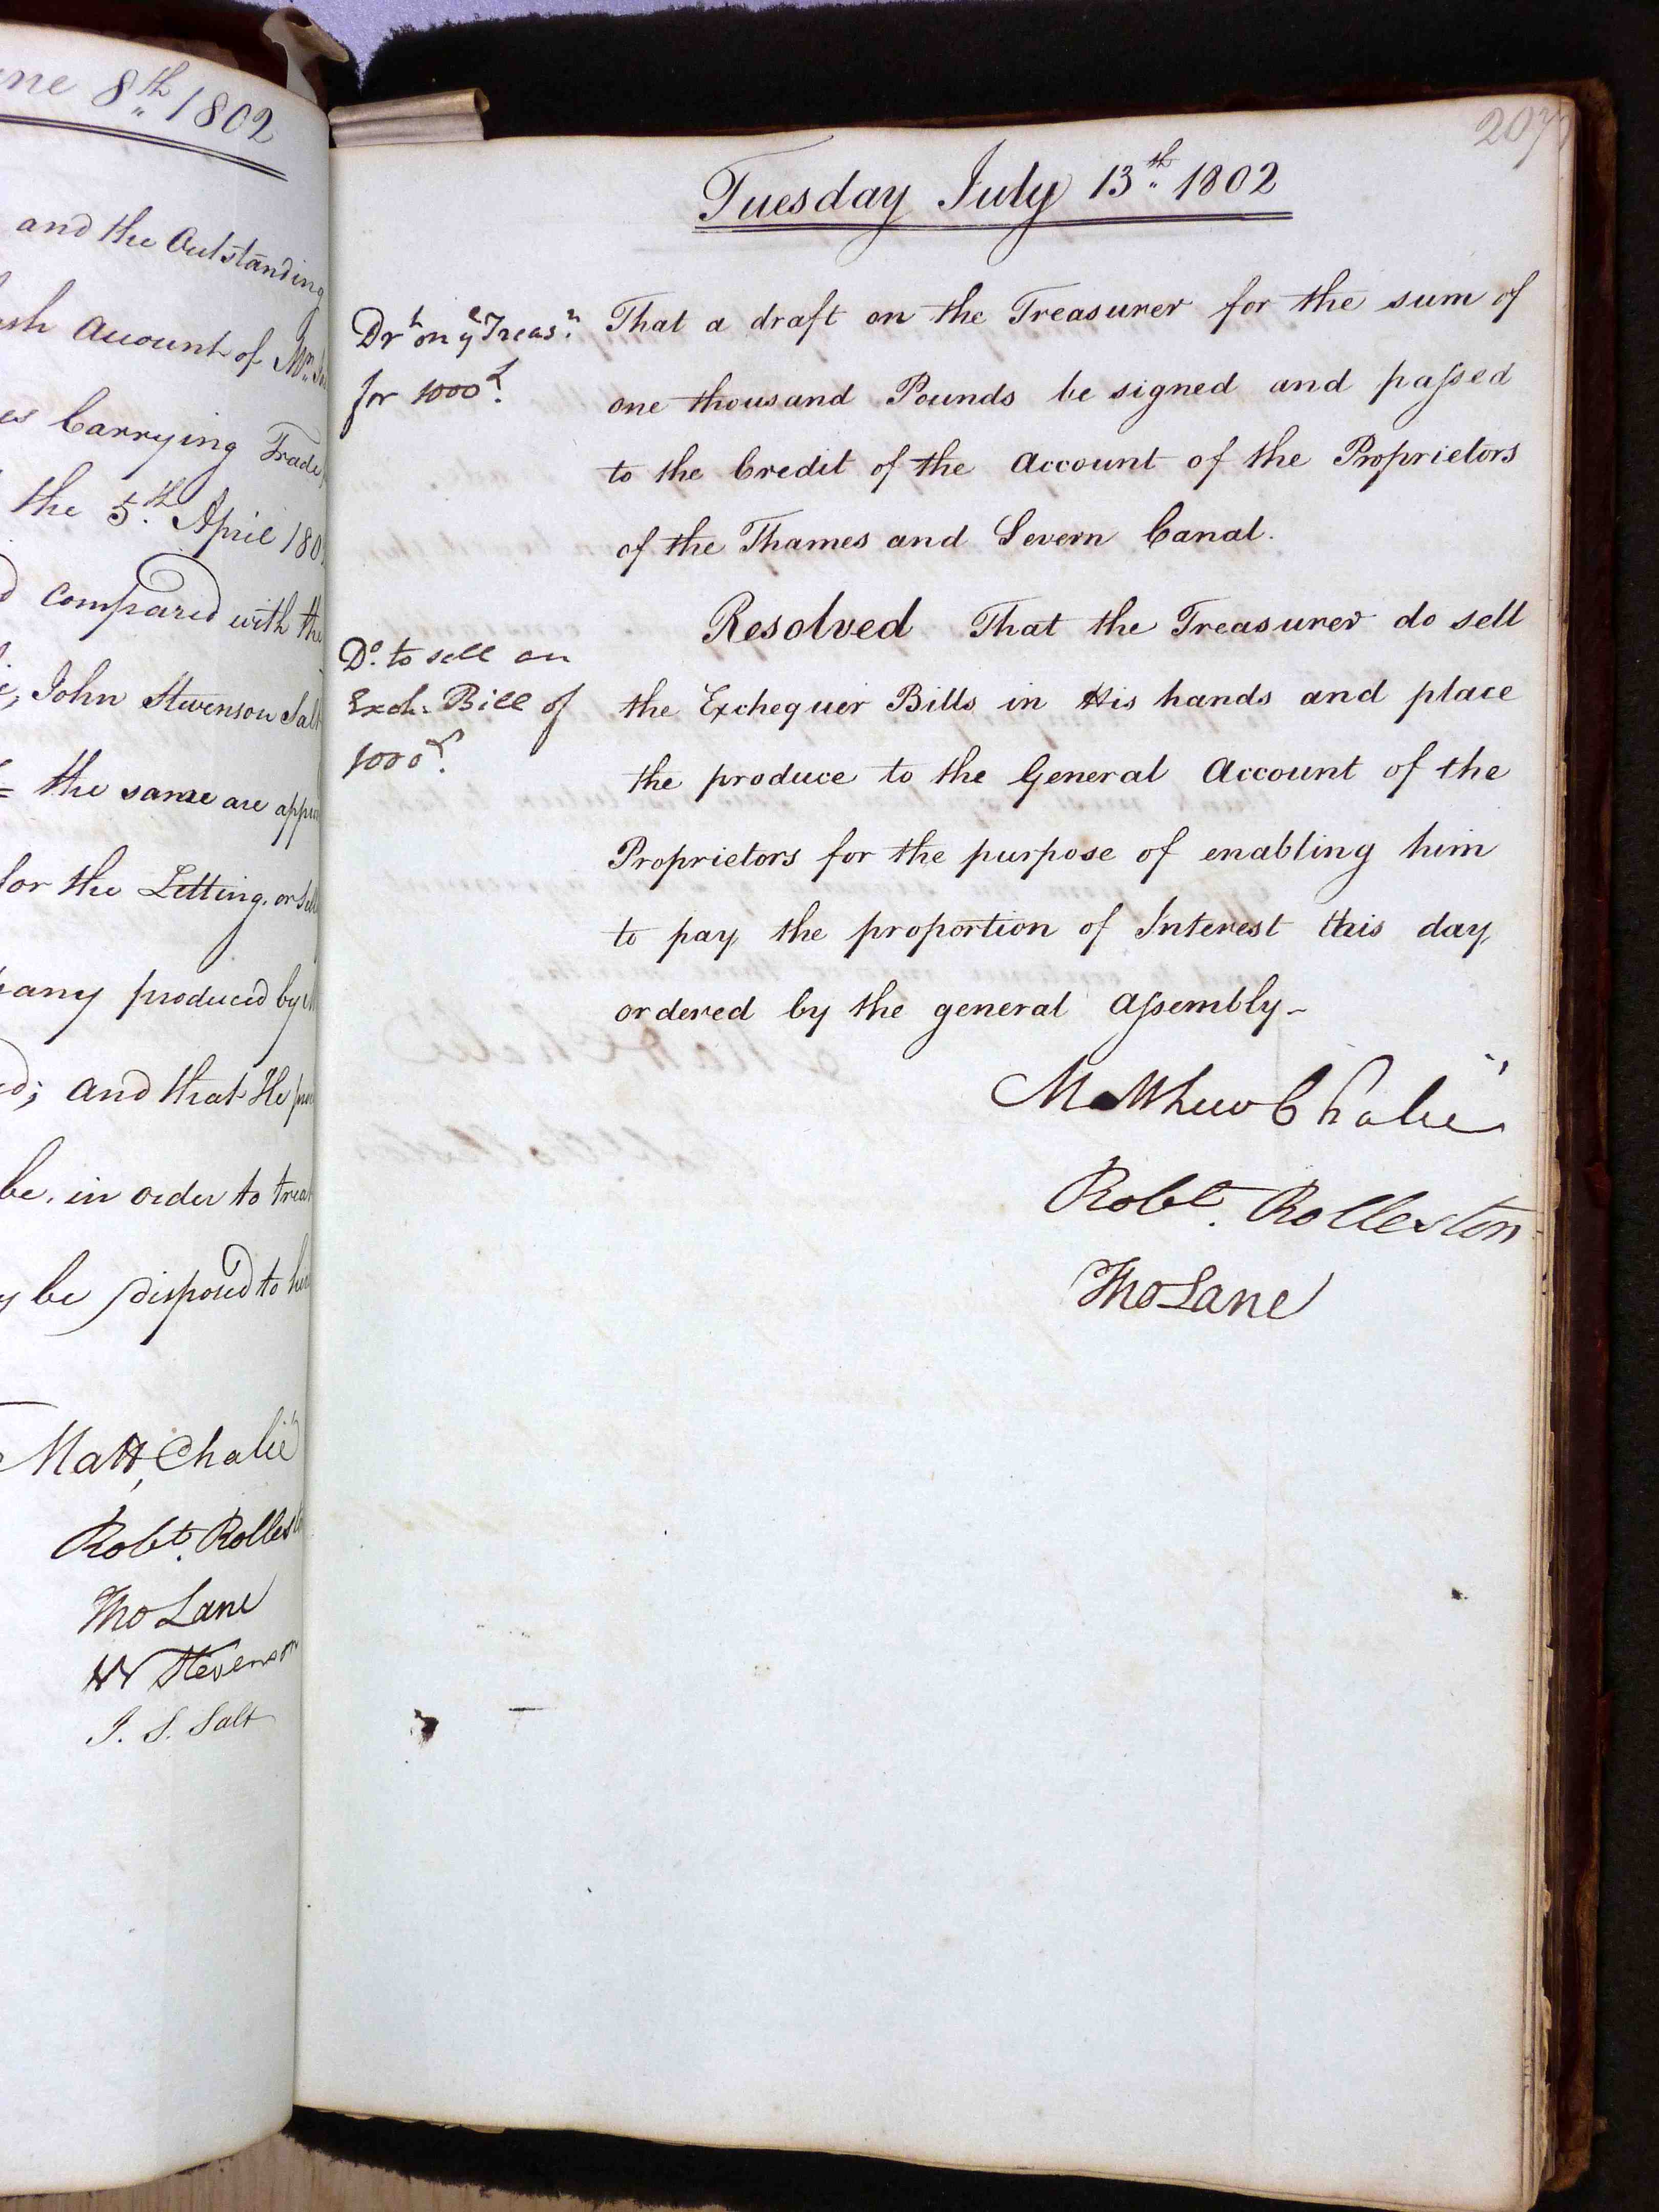 ne 8th 1802
and the Outstanding
sh Account of Mr
es Carrying Trade
the 5th April 180
d compared with the
John Stevenson Salt
= the same are appr
for the Letting, or Sell
pany produced by
d; and that He
be, in order to treat
y be disposed to
Matt, Chalié
Robt. Rollest
Tho Lane
W Stevenson
J. S. Salt
207
Tuesday July 13th 1802
Drt on ye Treasr
for 1000£.
That a draft on the Treasurer for the sum of
one thousand Pounds be signed and paſsed
to the Credit of the Account of the Proprietors
of the Thames and Severn Canal.
Do. to sell an
Exch. Bill of
1000£.
Resolved That the Treasurer do sell
the Exchequer Bills in His hands and place
the produce to the General Account of the
Proprietors for the purpose of enabling him
to pay the proportion of Interest this day
ordered by the general Aſsembly-
Matthew Chalié
Robt. Rolleston
Tho Lane